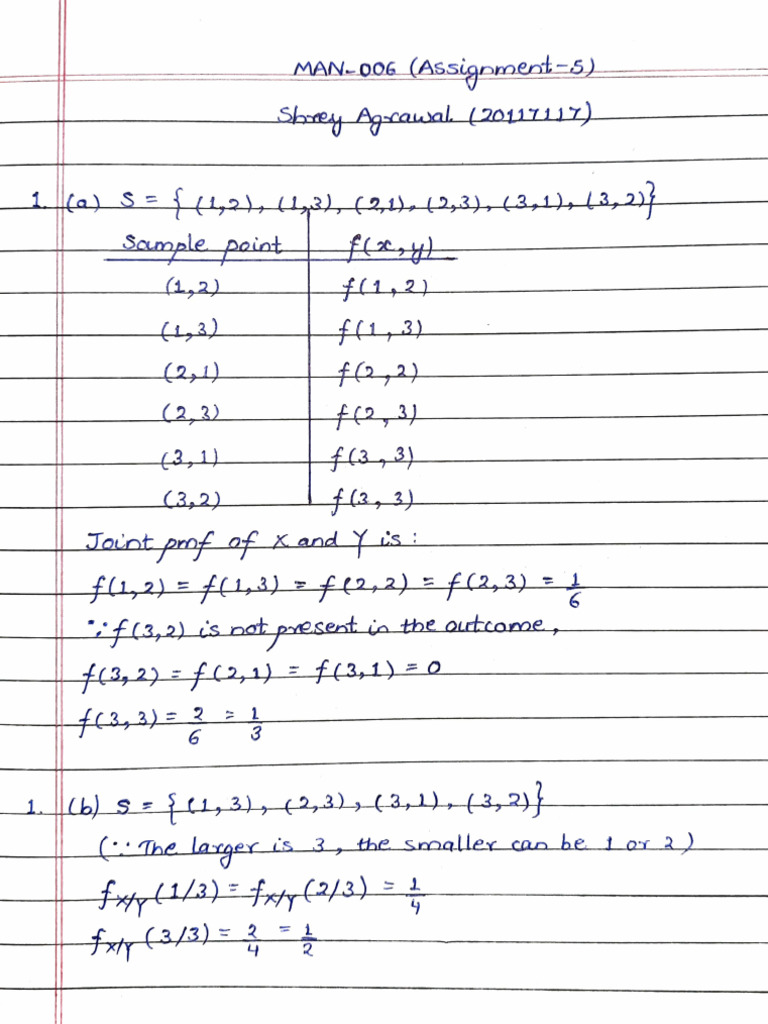 MAN-006 (Assignment-5)
Shrey Agrawal (20117117)
1. (a) S = { (1,2), (1,3), (2,1), (2,3), (3,1), (3,2)}
Sample point f(x,y)
(1,2) f(1,2)
(1,3) f(1,3)
(2,1) f(2,2)
(2,3) f(2,3)
(3,1) f(3,3)
(3,2) f(3,3)
Joint pmf of X and Y is:
f(1,2) = f(1,3) = f(2,2) = f(2,3) = 1/6
∵ f(3,2) is not present in the outcome,
f(3,2) = f(2,1) = f(3,1) = 0
f(3,3) = 2/6 = 1/3
1. (b) S = {(1,3), (2,3), (3,1), (3,2)}
(∵ The larger is 3, the smaller can be 1 or 2)
fX/Y (1/3) = fX/Y (2/3) = 1/4
fX/Y (3/3) = 2/4 = 1/2